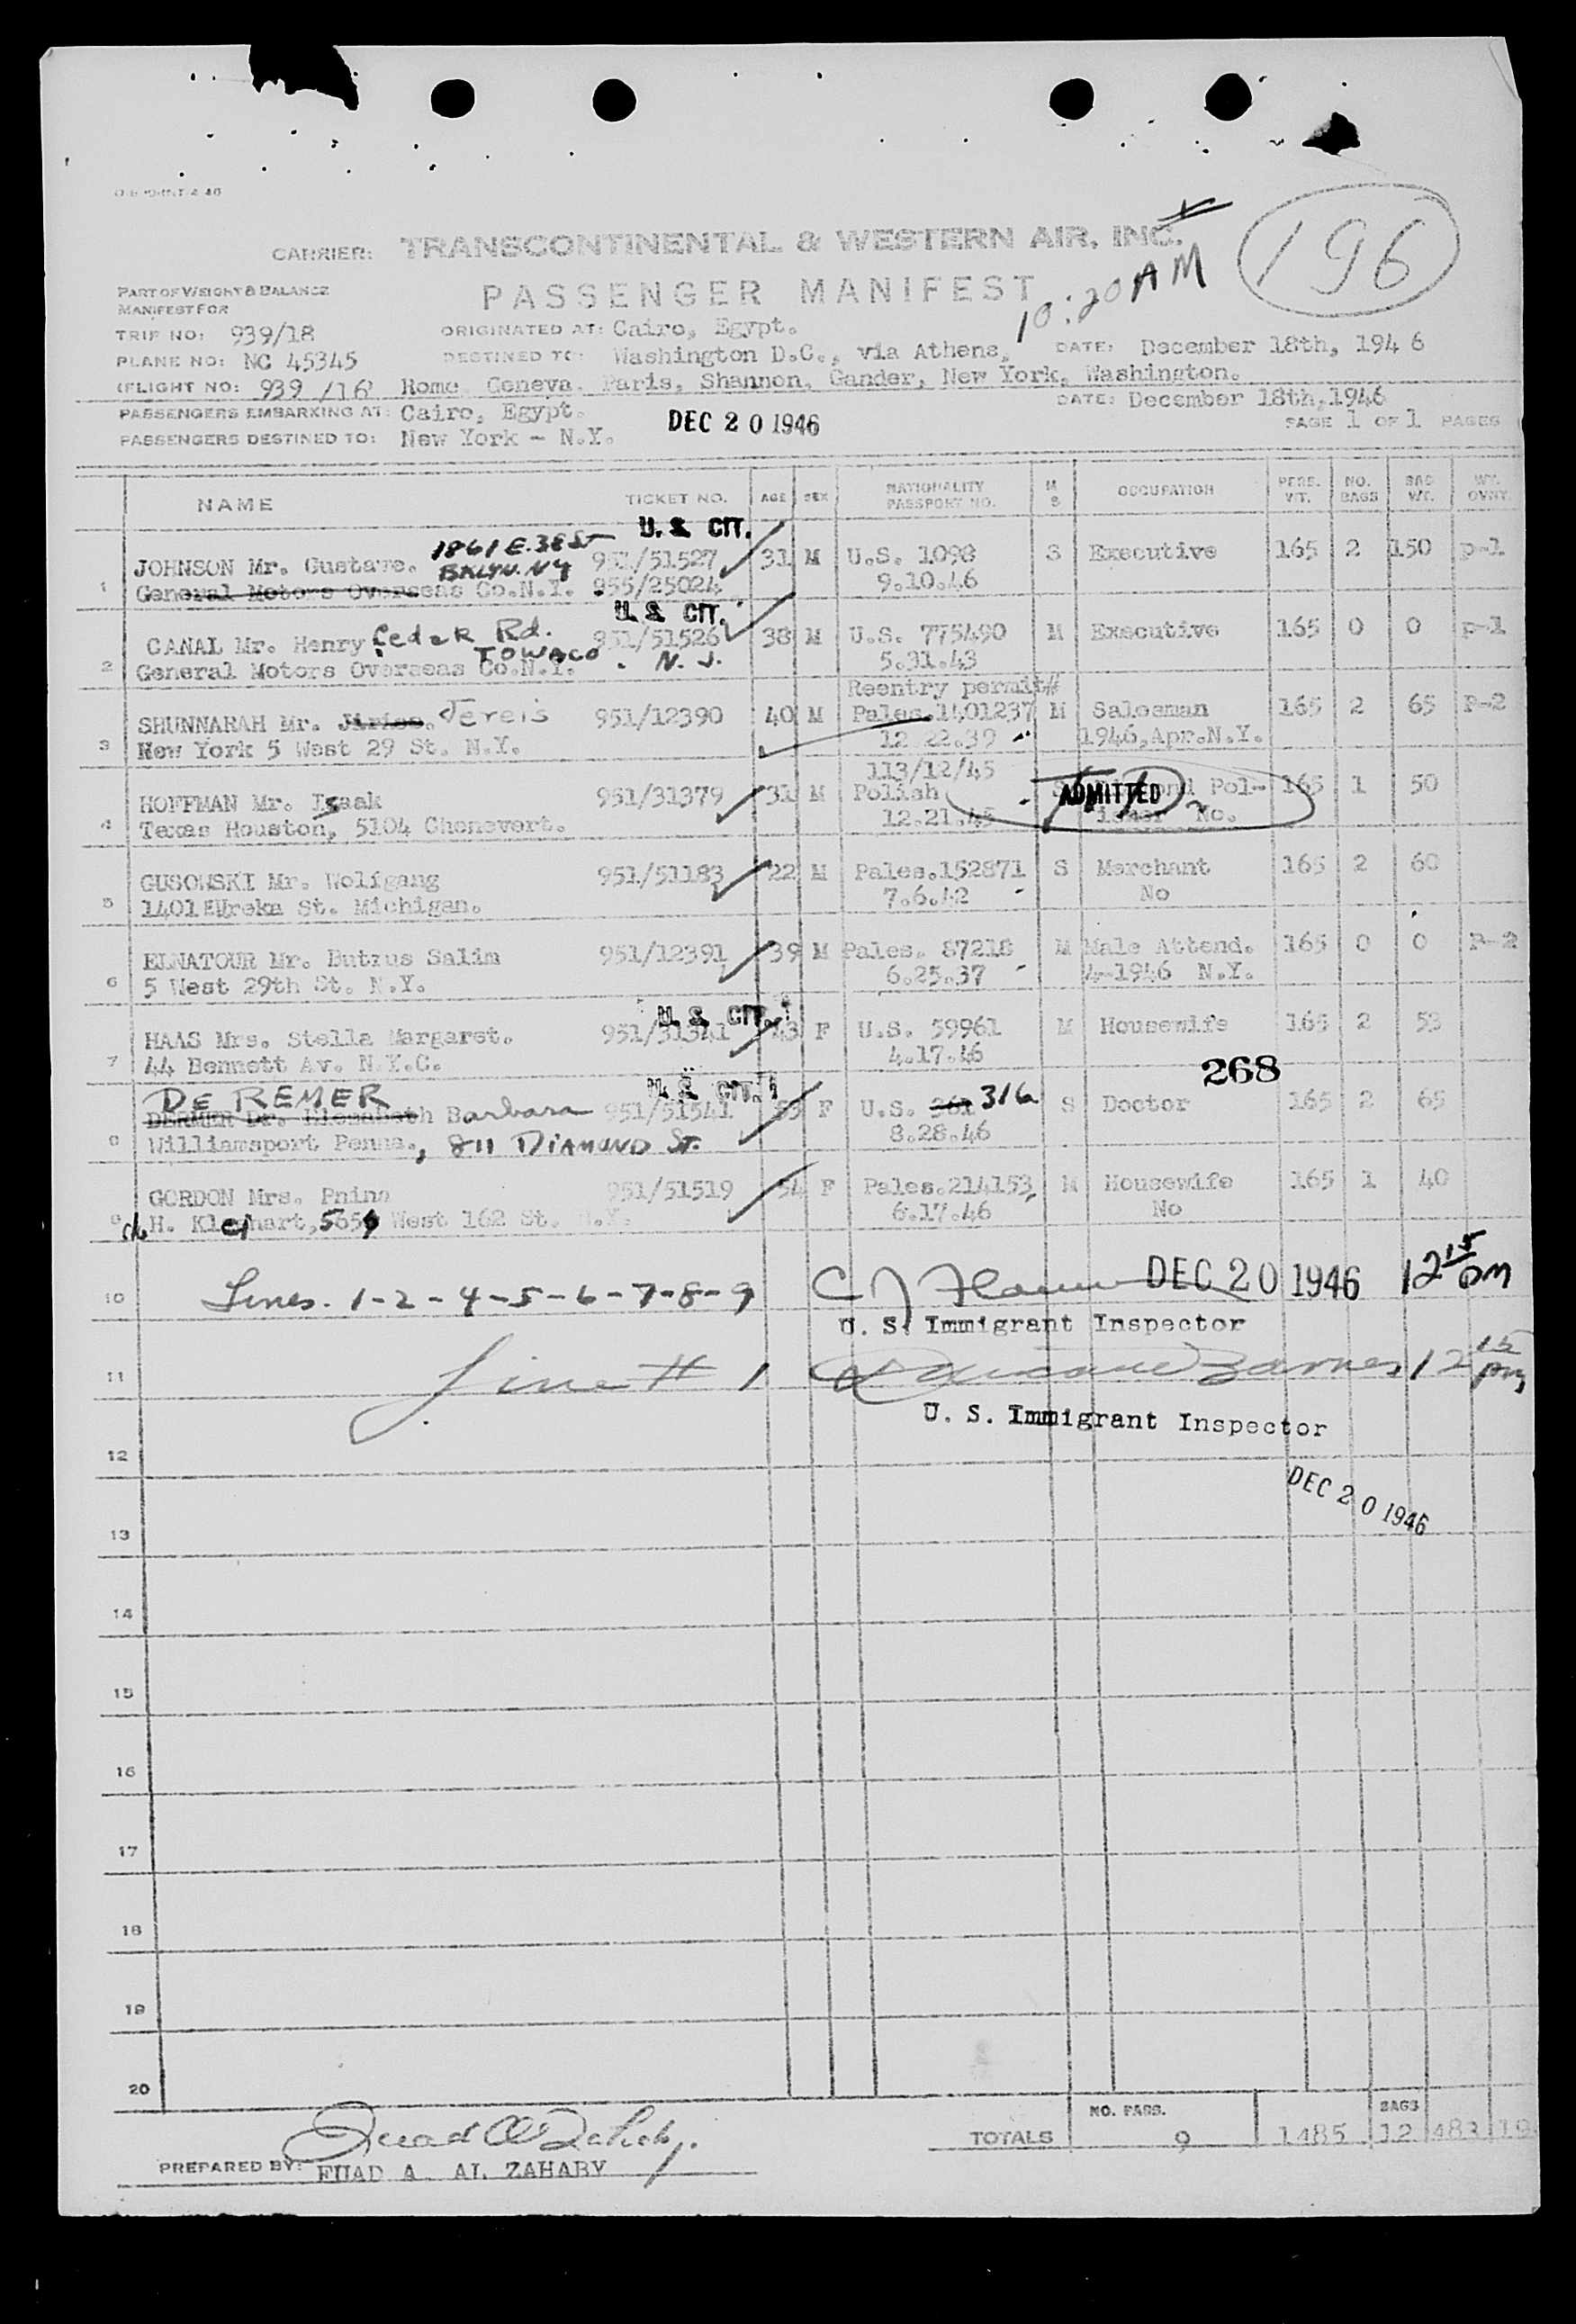 CARRIER: TRANSCONTINENTAL & WESTERN AIR, INC.
196
PART OF WEIGHT & BALANCE
MANIFEST FOR
PASSENGER MANIFEST
10:20 AM
TRIP NO: 939/18
ORIGINATED AT: Cairo, Egypt.
PLANE NO: NC 45345
DESTINED TO: Washington D.C., via Athens,
DATE: December 18th, 1946
FLIGHT NO: 939 /16 Rome, Geneva, Paris, Shannon, Gander, New York, Washington.
PASSENGERS EMBARKING AT: Cairo, Egypt.
DATE: December 18th, 1946
PASSENGERS DESTINED TO: New York - N.Y.
DEC 20 1946
PAGE 1 OF 1 PAGES
NAME TICKET NO. AGE SEX NATIONALITY PASSPORT NO. M S OCCUPATION PERS. WT. NO. BAGS BAG WT.
U. S. CIT.
1861 E. 38 St
BKLYN. NY
1 JOHNSON Mr. Gustave. 951/51527 31 M U.S. 1098 S Executive 165 2 150 p-1
General Motors Overseas Co.N.Y. 955/25024 9.10.46
U. S. CIT.
2 CANAL Mr. Henry Cedar Rd. 951/51526 38 M U.S. 775490 M Executive 165 0 0 p-1
TOWACO N. J.
General Motors Overseas Co.N.Y. 5.31.43
Reentry permit#
3 SHUNNARAH Mr. Jiries. Jereis 951/12390 40 M Pales.1401237 M Salesman 165 2 65 P-2
New York 5 West 29 St. N.Y. 12 22.39 1946,Apr.N.Y.
113/12/45
4 HOFFMAN Mr. Isaak 951/31379 31 M Polish S ADMITTED Pol- 165 1 50
Texas Houston, 5104 Chenevert. 12.21.45 No.
5 GUSOWSKI Mr. Wolfgang 951/51183 22 M Pales.152871 S Merchant 165 2 60
1401 Eureka St. Michigan. 7.6.42 No
6 ELNATOUR Mr. Butrus Salim 951/12391 39 M Pales. 87218 M Male Attend. 165 0 0 P-2
5 West 29th St. N.Y. 6.25.37 4-1946 N.Y.
U. S. CIT.
7 HAAS Mrs. Stella Margaret. 951/31341 43 F U.S. 59961 M Housewife 165 2 53
44 Bennett Av. N.Y.C. 4.17.46
268
DE REMER
U. S. CIT.
8 DERMER Dr. Elezabeth Barbara 951/51541 F U.S. 361 316 S Doctor 165 2 65
Williamsport Penna., 811 DIAMOND ST. 8.28.46
9 GORDON Mrs. Pnina 951/51519 54 F Pales.214153 M Housewife 165 1 40
West 162 St. N.Y. 6.17.46 No
10 Lines. 1-2-4-5-6-7-8-9 DEC 20 1946 12 15 pm
U. S. Immigrant Inspector
11 Line # 1 12 15 pm
U. S. Immigrant Inspector
12
DEC 20 1946
13
14
15
16
17
18
19
20
TOTALS NO. PASS. 9 1485 BAGS 12 483
PREPARED BY: FUAD A. AL ZAHABY